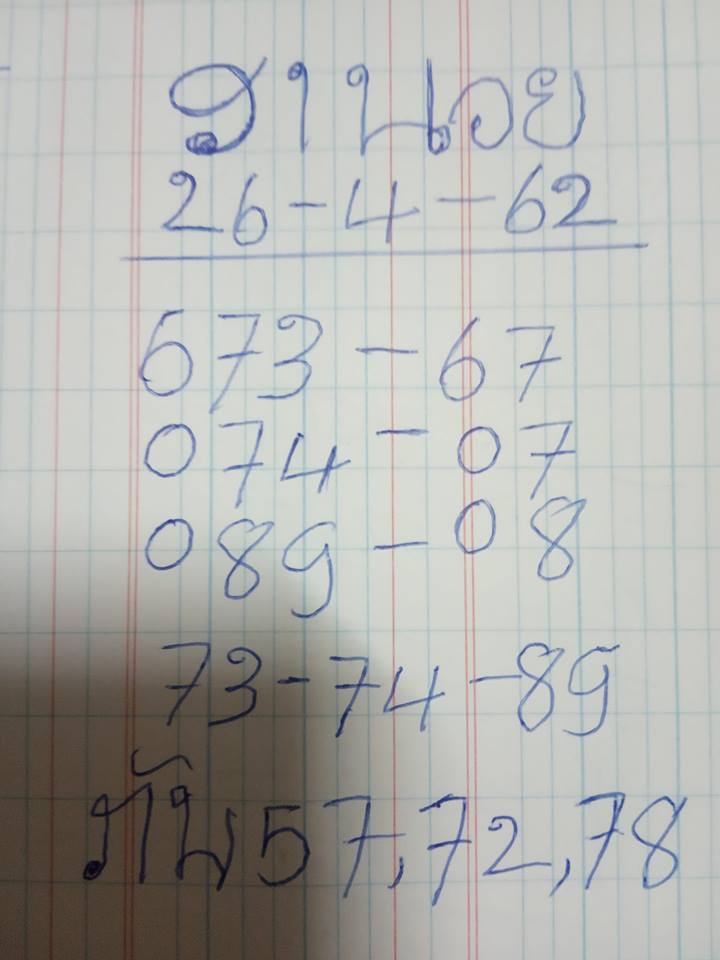 ฮานอย
26-4-62
673-67
074-07
089-08
73-74-89
กัน57,72,78